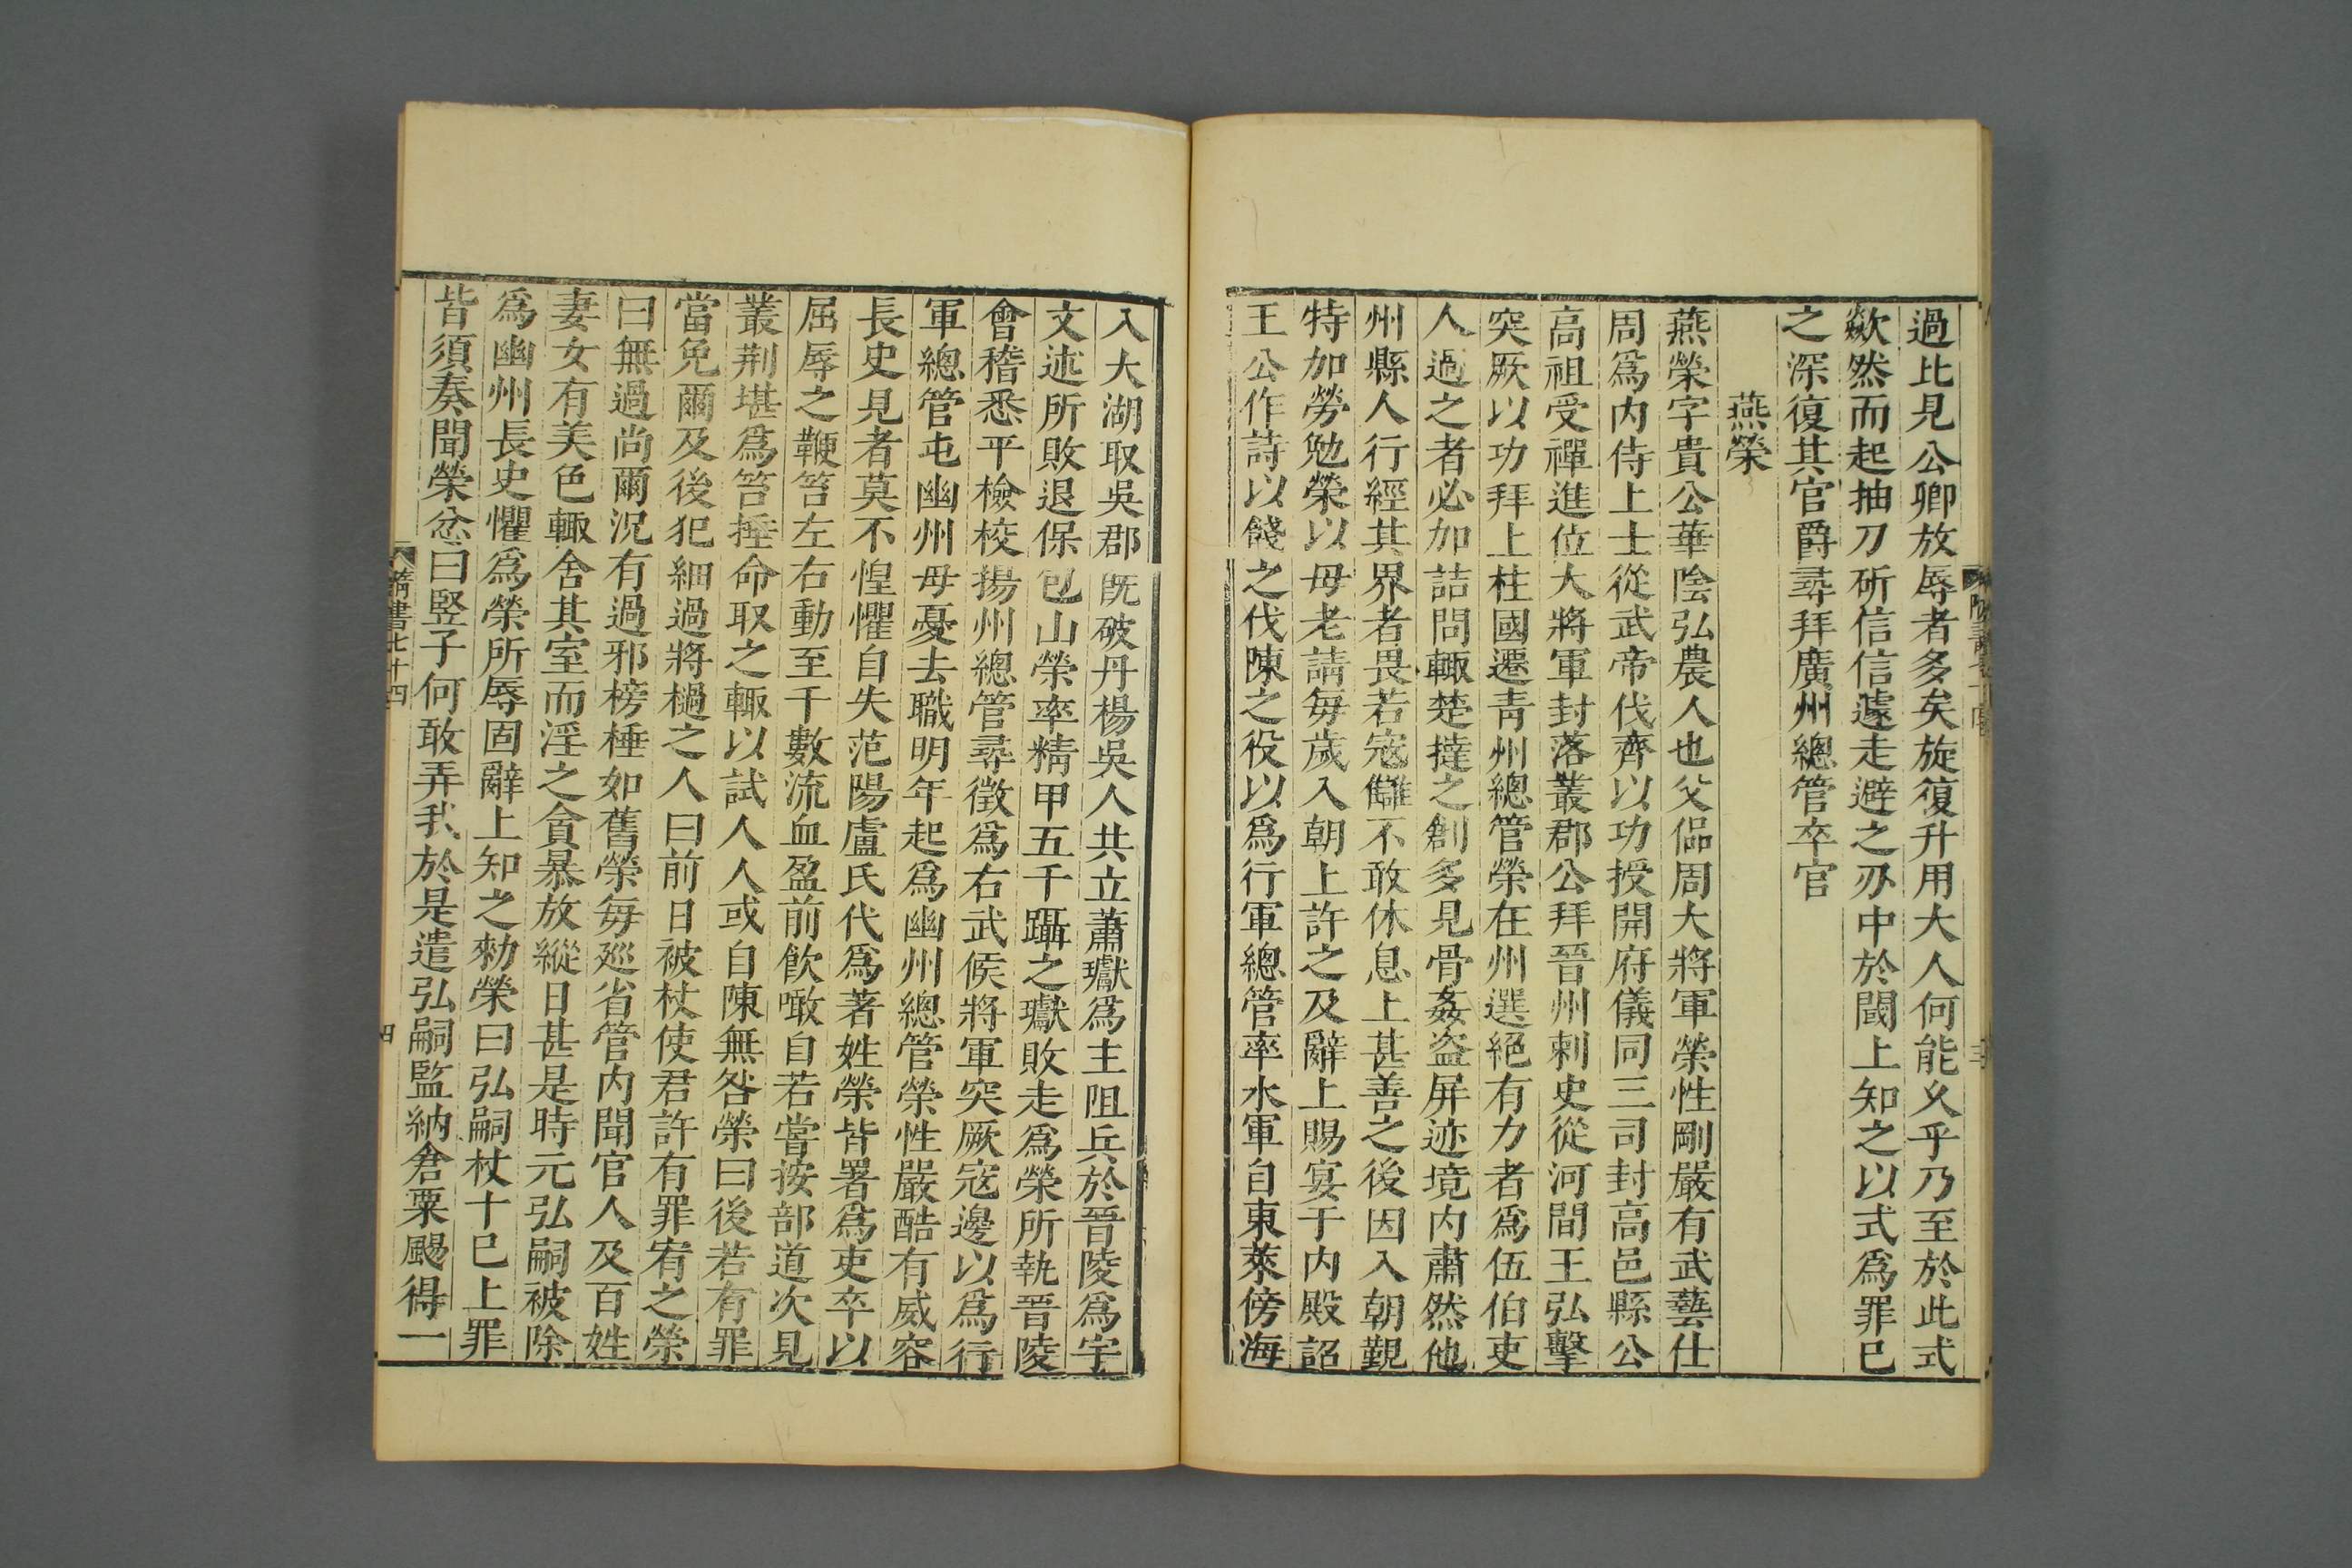 過比見公卿放辱者多矣旋復升用大人何能乆乎乃至於此式
歘然而起抽刀斫信信遽走避之刃中於閾上知之以式爲罪已
之深復其官爵尋拜廣州總管卒官
燕榮
燕榮字貴公華陰弘農人也父偘周大將軍榮性剛嚴有武藝仕
周爲内侍上士從武帝伐齊以功授開府儀同三司封高邑縣公
高祖受禪進位大將軍封落叢郡公拜晉州剌史從河間王弘擊
突厥以功拜上柱國遷青州總管榮在州選絕有力者爲伍伯吏
人過之者必加詰問輙楚撻之創多見骨姦盗屏迹境内肅然他
州縣人行經其界者畏若宼讎不敢休息上甚善之後因入朝覲
特加勞勉榮以母老請毎歳入朝上許之及辭上賜宴于内殿詔
王公作詩以餞之伐陳之役以爲行軍總管率水軍自東萊傍海
入大湖取吳郡旣破丹楊吳人共立蕭瓛爲主阻兵於晉陵爲宇
文述所敗退保包山榮率精甲五千躡之瓛敗走爲榮所執晉陵
會稽悉平檢校揚州總管尋徵爲右武候將軍突厥宼邊以爲行
軍總管屯幽州母憂去職明年起爲幽州總管榮性嚴酷有威容
長史見者莫不惶懼自失范陽盧氏代爲著姓榮皆署爲吏卒以
屈辱之鞭笞左右動至千數流血盈前飲噉自若嘗按部道次見
叢荆堪爲笞捶命取之輙以試人人或自陳無咎榮曰後若有罪
當免爾及後犯細過將檛之人曰前日被杖使君許有罪宥之榮
曰無過尚爾況有過邪榜棰如舊榮毎廵省管内聞官人及百姓
妻女有美色輙舍其室而淫之貪暴放縱日甚是時元弘嗣被除
爲幽州長史懼爲榮所辱固辭上知之勑榮曰弘嗣杖十已上罪
皆須奏聞榮忿曰竪子何敢弄我於是遣弘嗣監納倉粟颺得一
隋書七十四
四